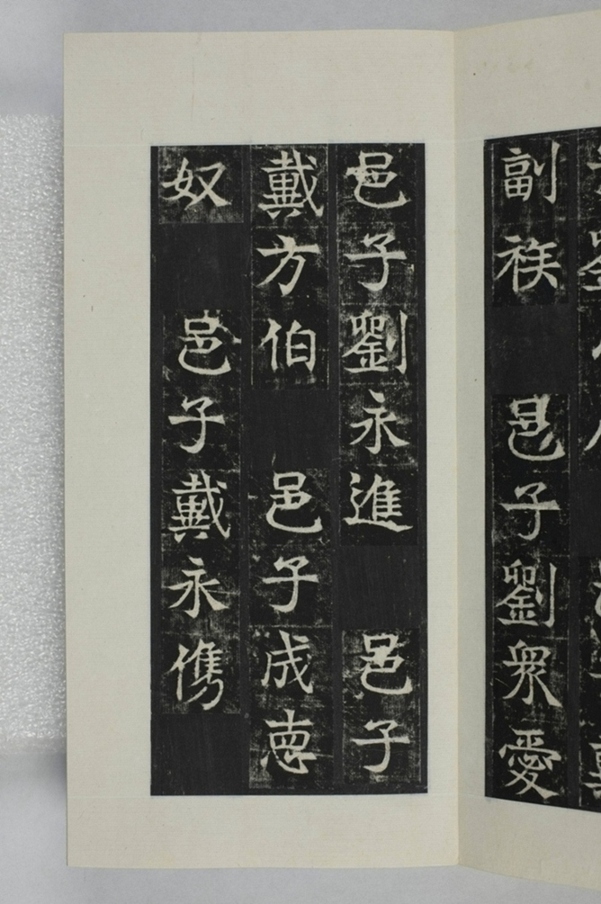 副族 邑子劉衆愛
邑子劉永進 邑子
戴方伯 邑子成恵
奴 邑子戴永儁